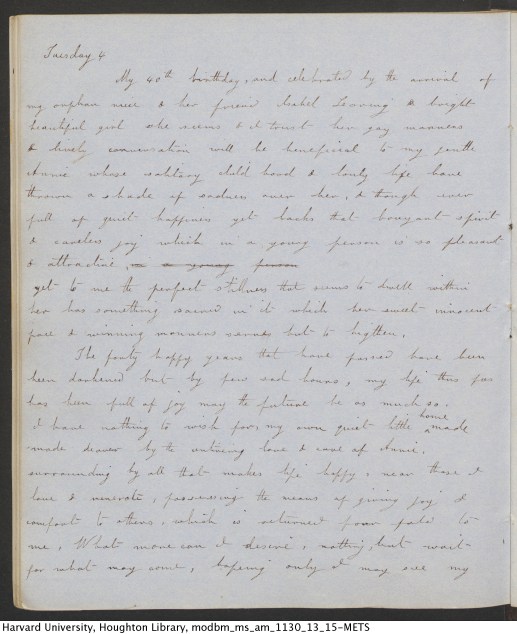 Tuesday 4
My 40th birthday, and celebrated by the arrival of
my orphan niece & her friend Isabel Loring a bright
beautiful girl she seems & I trust her gay manners
& lively conversation will be beneficial to my gentle
Annie whose solitary child hood & lonely life have
thrown a shade of sadness over her, & though ever
full of quiet happiness yet lacks that bouyant spirit
& careless joy which in a young person is so pleasant
& attractive, in a young person
yet to me the perfect stillness that seems to dwell within
her has something sacred in it which her sweet innocent
face & winning manners serves but to highten.
The forty happy years that have passed have been
been darkened but by few sad hours, my life thus far
has been full of joy may the future be as much so.
I have nothing to wish for, my own quiet little home made
made dearer by the untiring love & care of Annie,
surrounding by all that makes life happy, near those I
love & venerate, possessing the means of giving joy &
comfort to others, which is returned four fold to
me, What more can I desire, nothing, but wait
for what may come, hopeing only I may see my
Harvard University, Houghton Library, modbm_ms_am_1130_13_15-METS